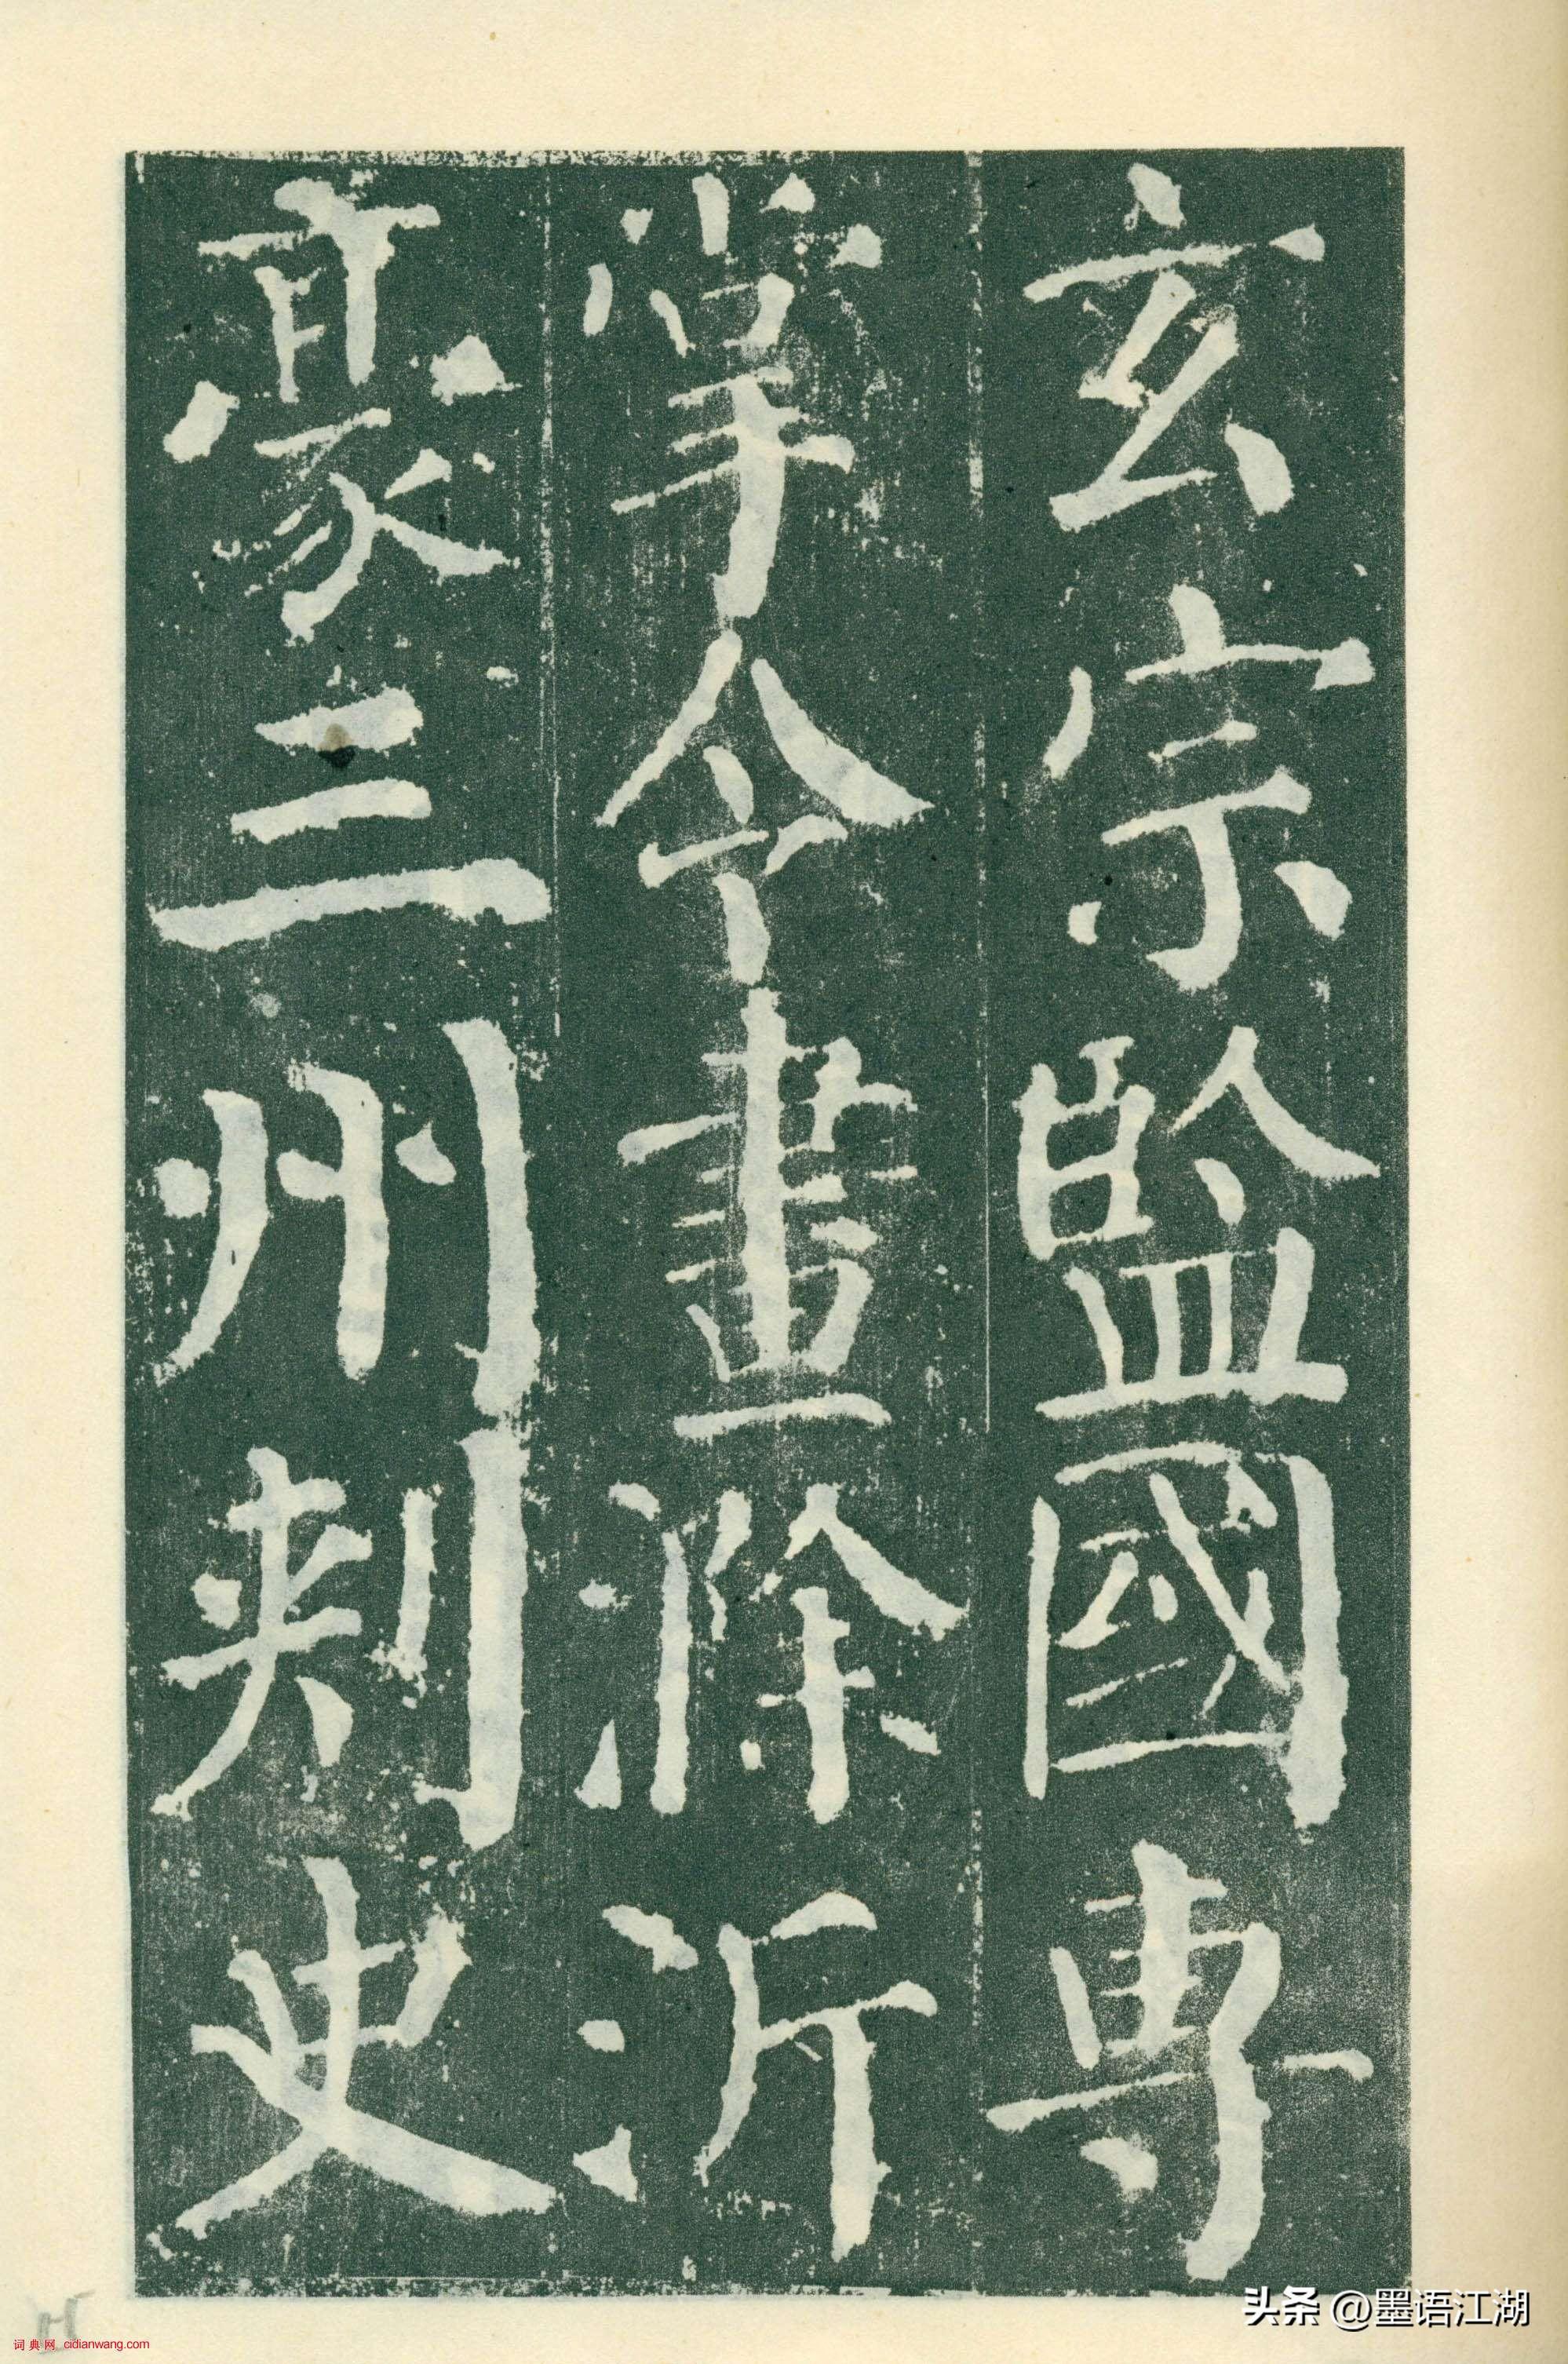 玄宗監國專
掌令畫滁沂
豪三州刺史
头条 @墨语江湖
词典网 cidianwang.com